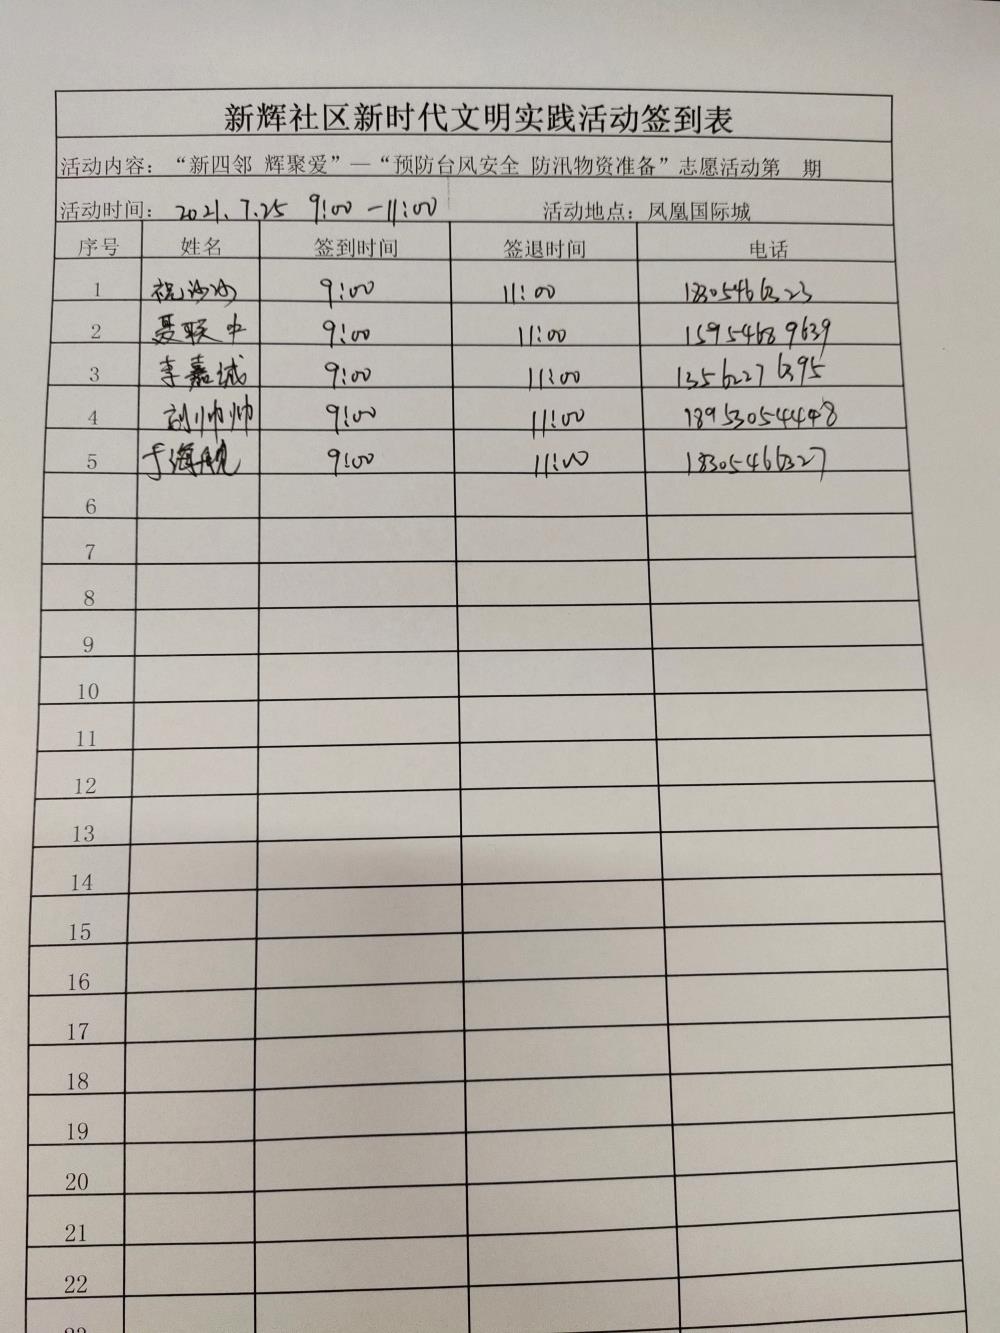 新辉社区新时代文明实践活动签到表
活动内容：“新四邻 辉聚爱”—“预防台风安全 防汛物资准备”志愿活动第 期
活动时间：2021.7.25 9:00-11:00 活动地点：凤凰国际城
序号 姓名 签到时间 签退时间 电话
1 祝沙沙 9:00 11:00 18305466323
2 聂联中 9:00 11:00 15954689639
3 李嘉诚 9:00 11:00 13562276395
4 刘帅帅 9:00 11:00 18953054448
5 于海舰 9:00 11:00 18305466327
6
7
8
9
10
11
12
13
14
15
16
17
18
19
20
21
22